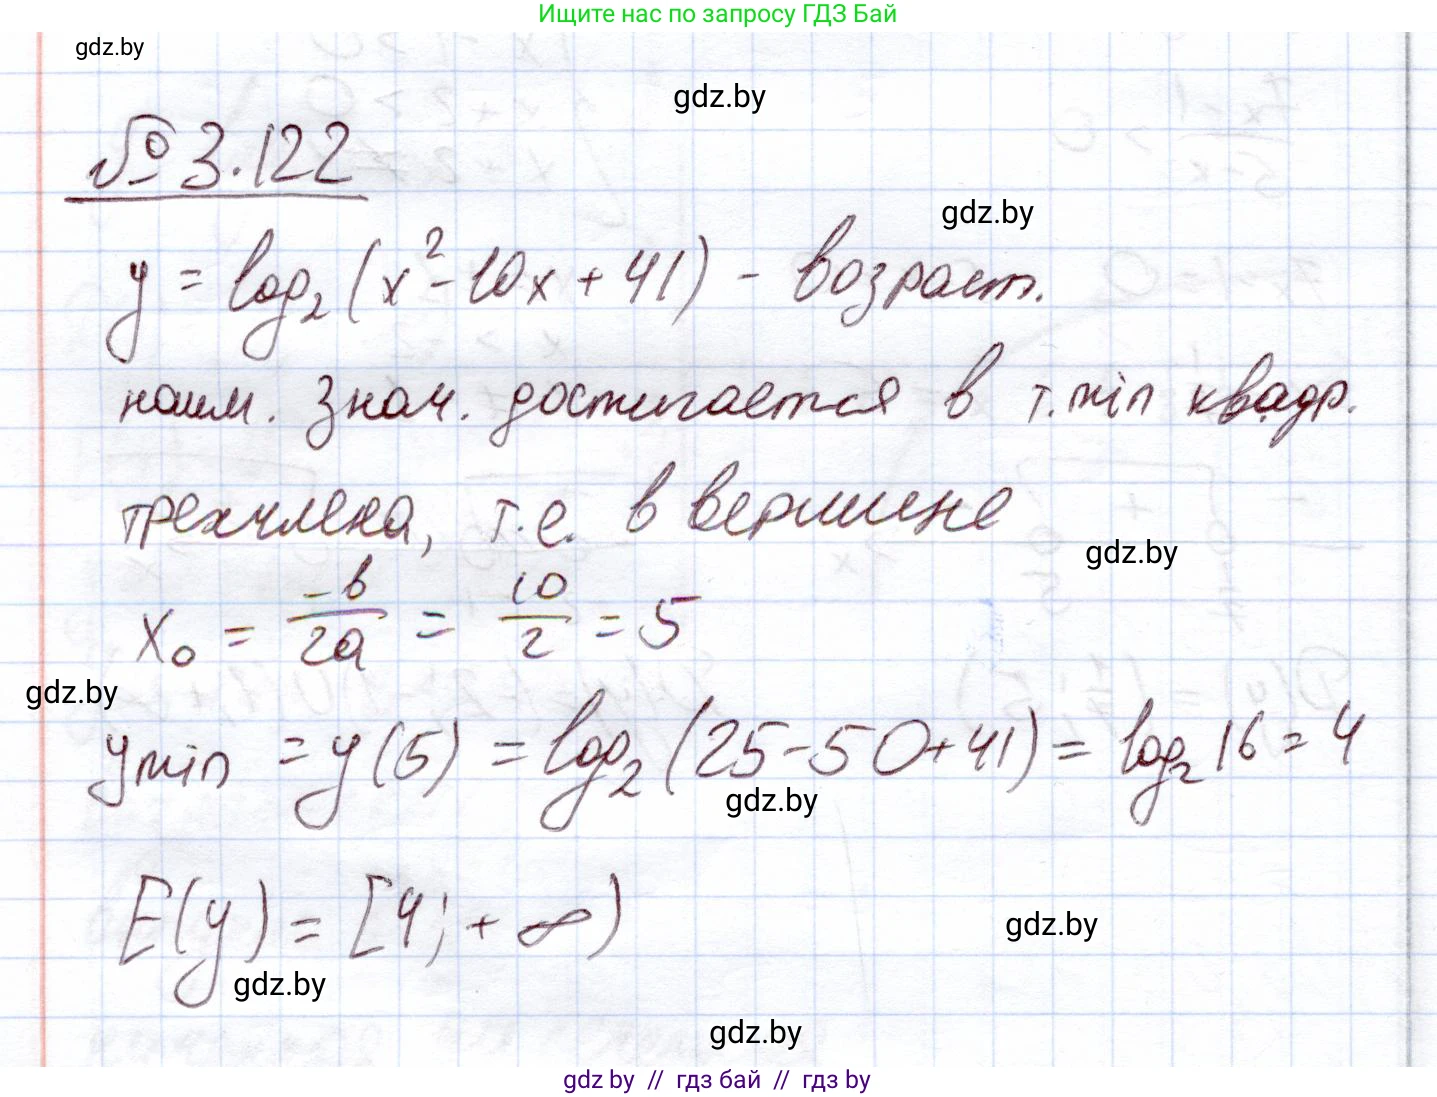 Ищите нас по запросу ГДЗ Бай
gdz.by
gdz.by
№ 3.122
gdz.by
y = log₂ (x² - 10x + 41) - возраст.
наим. знач. достигается в т. min квадр.
трехчлена, т.е. в вершине
gdz.by
x₀ = -b/2a = 10/2 = 5
gdz.by
y min = y(5) = log₂ (25 - 50 + 41) = log₂ 16 = 4
gdz.by
E(y) = [4; + ∞)
gdz.by
gdz.by
gdz.by
gdz by // гдз бай // гдз by